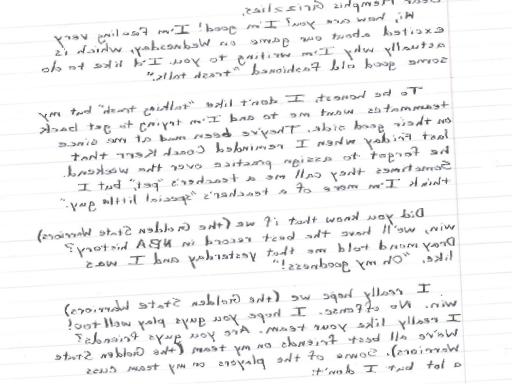 Dear Memphis Grizzlies,
Hi, how are you? I'm good! I'm feeling very
excited about our game on Wednesday, which is
actually why I'm writing to you. I'd like to do
some good old fashioned "trash talk."
To be honest, I don't like "talking trash" but my
teammates want me to and I'm trying to get back
on their good side. They've been mad at me since
last Friday when I reminded Coach Kerr that
he forgot to assign practice over the weekend.
Sometimes they call me a teacher's "pet," but I
think I'm more of a teacher's "special little guy."
Did you know that if we (the Golden State Warriors)
win, we'll have the best record in NBA history?
Draymond told me that yesterday and I was
like, "Oh my goodness!"
I really hope we (the Golden State Warriors)
win. No offense. I hope you guys play well too!
I really like your team. Are you guys friends?
We're all best friends on my team (the Golden State
Warriors). Some of the players on my team cuss
a lot but I don't!